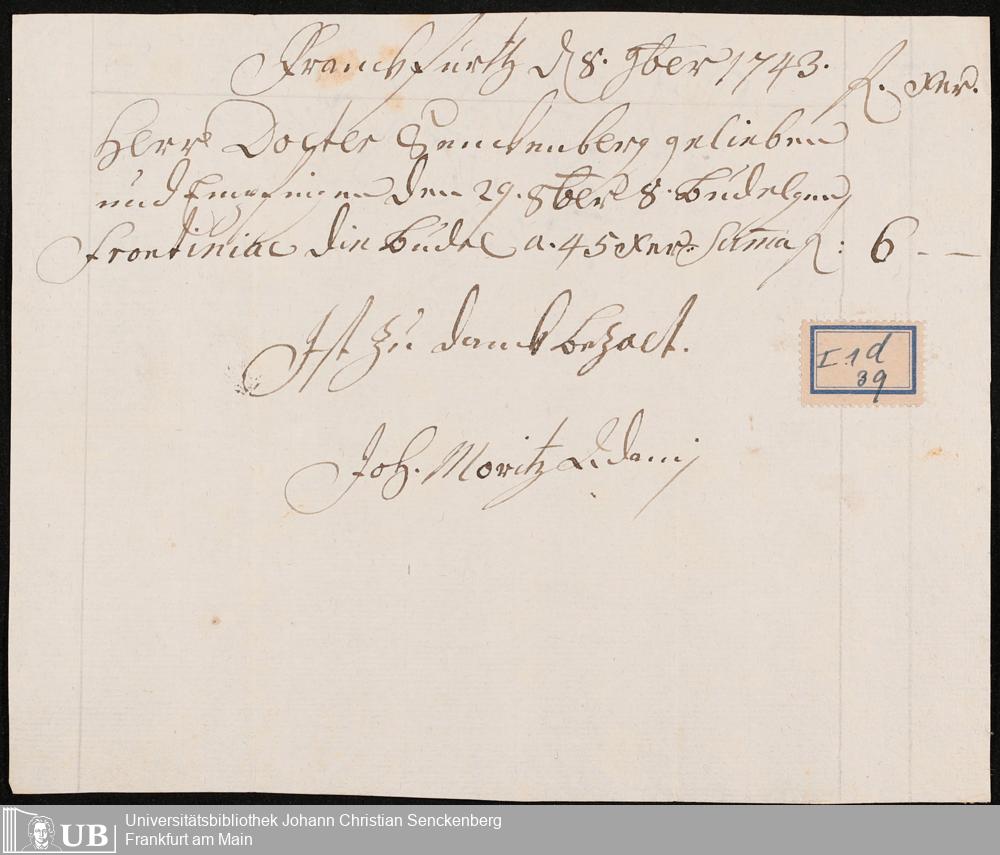 Franckfurth d 8. 9ber 1743.
f. xer.
Herr Docter Senckenberg gelieben
und Empfingen den 29. 8ber 8. budelgen
frontiniac die budel a. 45 xer. Suma f: 6 - -
Ist zu danck bezalt.
Joh. Moritz Adami
I. 1 d
39
UB
Universitätsbibliothek Johann Christian Senckenberg
Frankfurt am Main